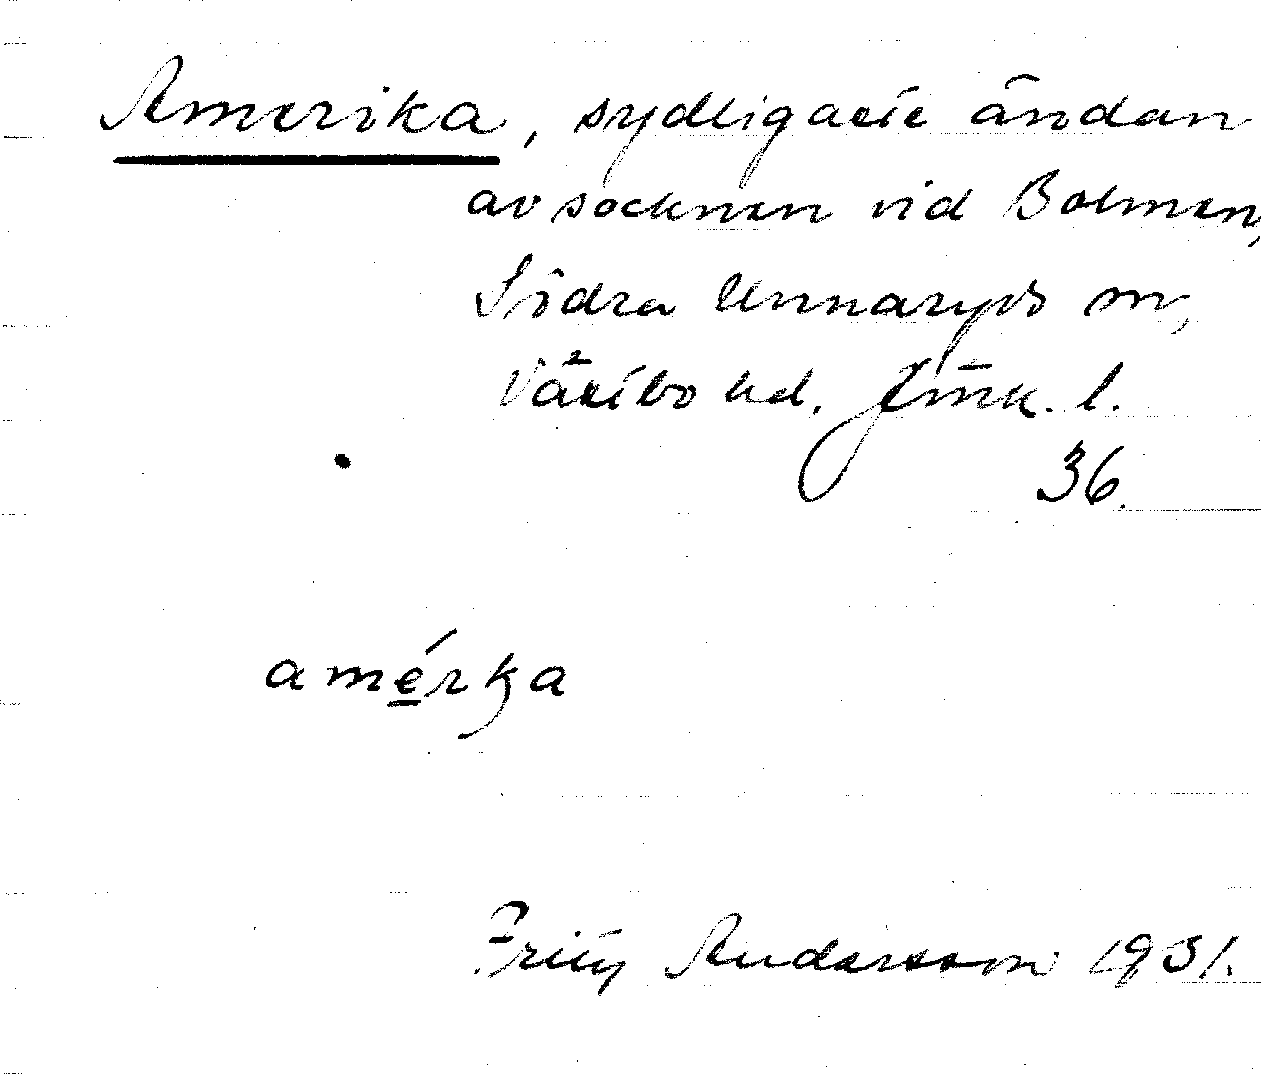 Amerika, sydligaste ändan
av socknen vid Bolmen,
Södra Unnaryds sn,
Västbo hd. Jönk. l.
36.
amérka
Fritz Andersson 1931.